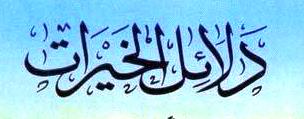 دلائل الخيرات